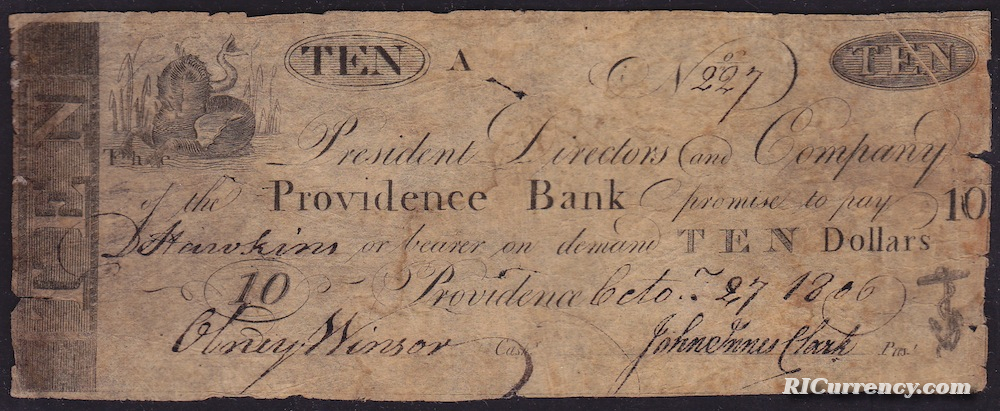 TEN
TEN A No 227 TEN
The President Directors and Company
of the Providence Bank promise to pay 10
D Hawkins or bearer on demand TEN Dollars
10 Providence Octor. 27 1806
Olney Winsor Cash. John Innes Clark Pres.t
RICurrency.com